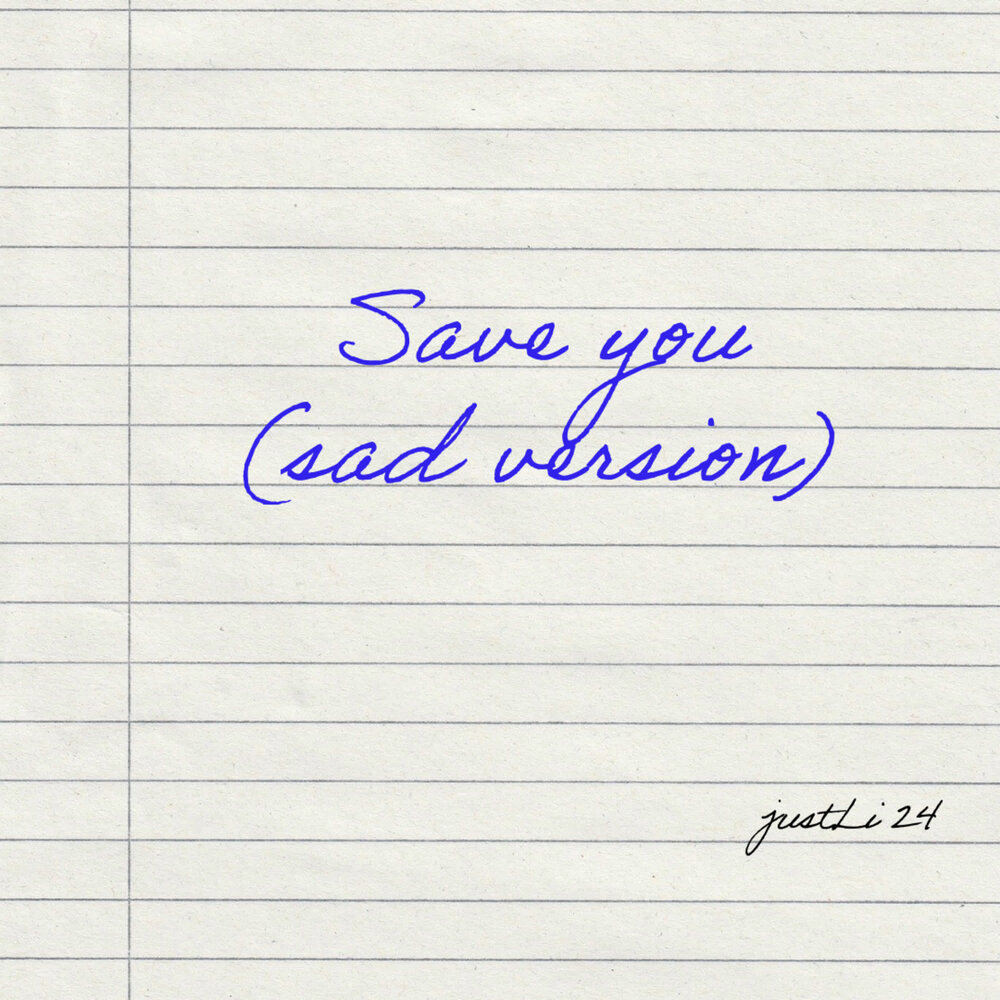 Save you
(sad version)
justLi 24